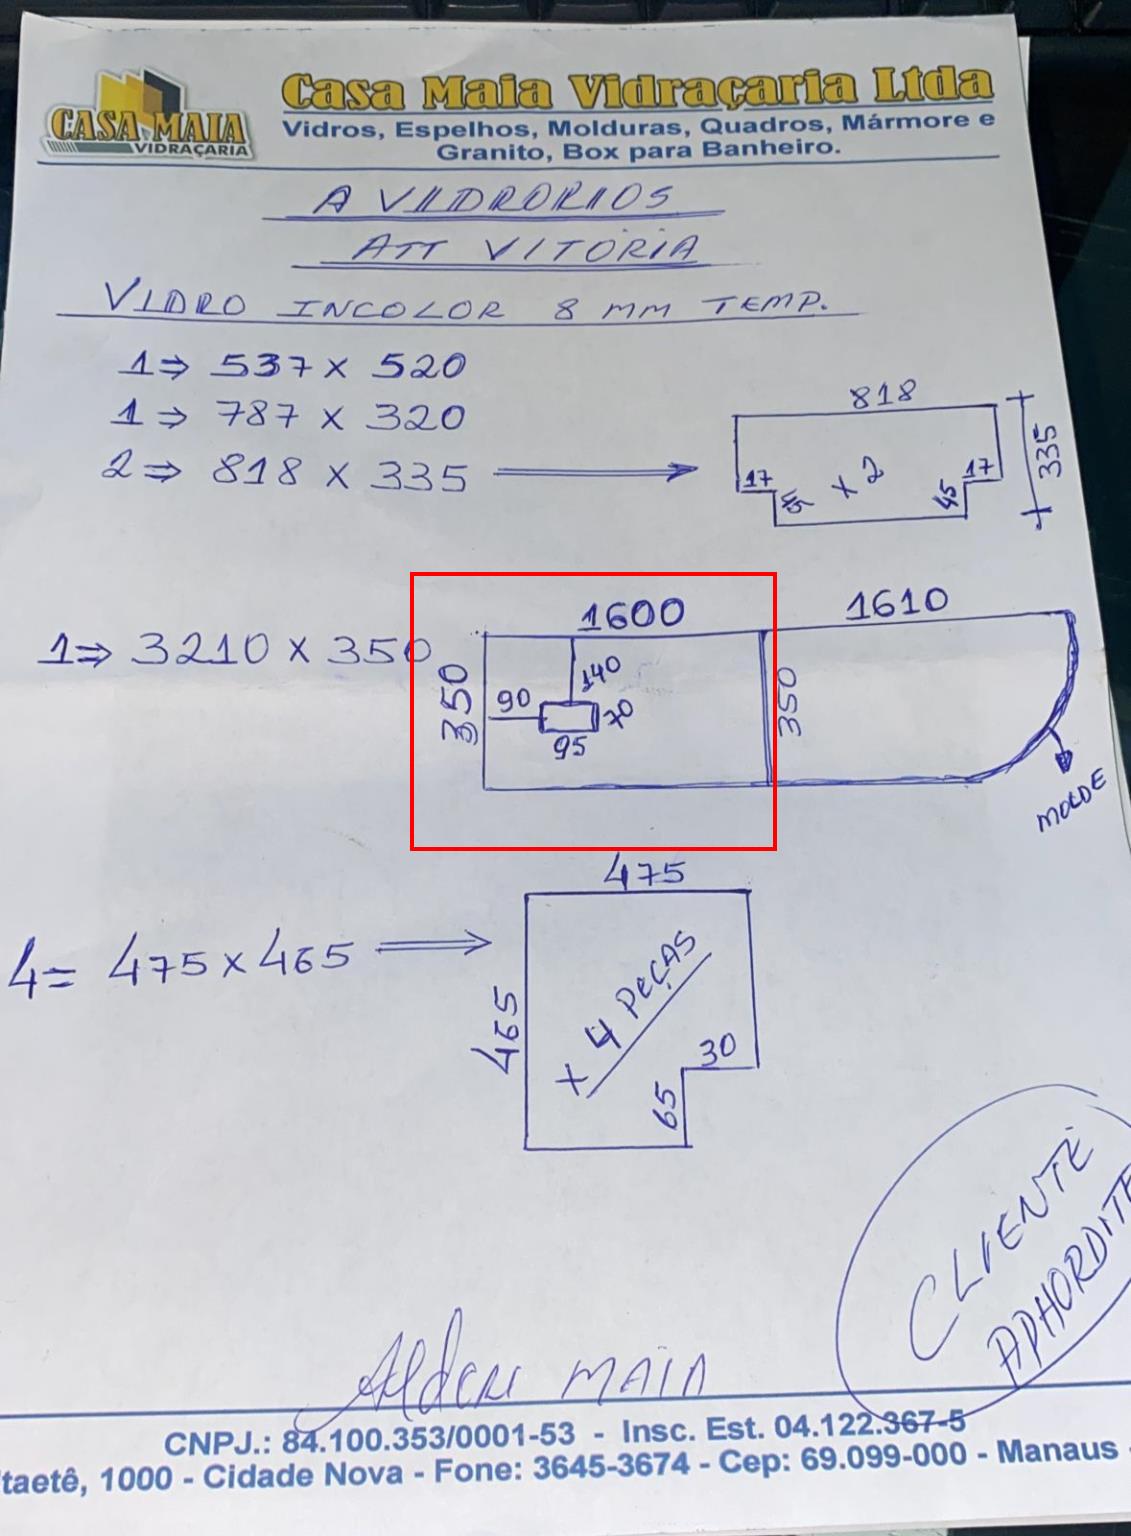 CASA MAIA
VIDRAÇARIA
Casa Maia Vidraçaria Ltda
Vidros, Espelhos, Molduras, Quadros, Mármore e
Granito, Box para Banheiro.
A VIDRORIOS
ATT VITÓRIA
VIDRO INCOLOR 8 MM TEMP.
1⇒ 537 x 520
1⇒ 787 x 320
2⇒ 818 x 335
818
335
17
17
45
45
x 2
1⇒ 3210 x 350
1600
1610
350
140
90
70
95
350
MOLDE
4= 475 x 465
475
465
x 4 PEÇAS
30
65
CLIENTE
APHORDITE
Alderi MAIA
CNPJ.: 84.100.353/0001-53 - Insc. Est. 04.122.367-5
taetê, 1000 - Cidade Nova - Fone: 3645-3674 - Cep: 69.099-000 - Manaus -